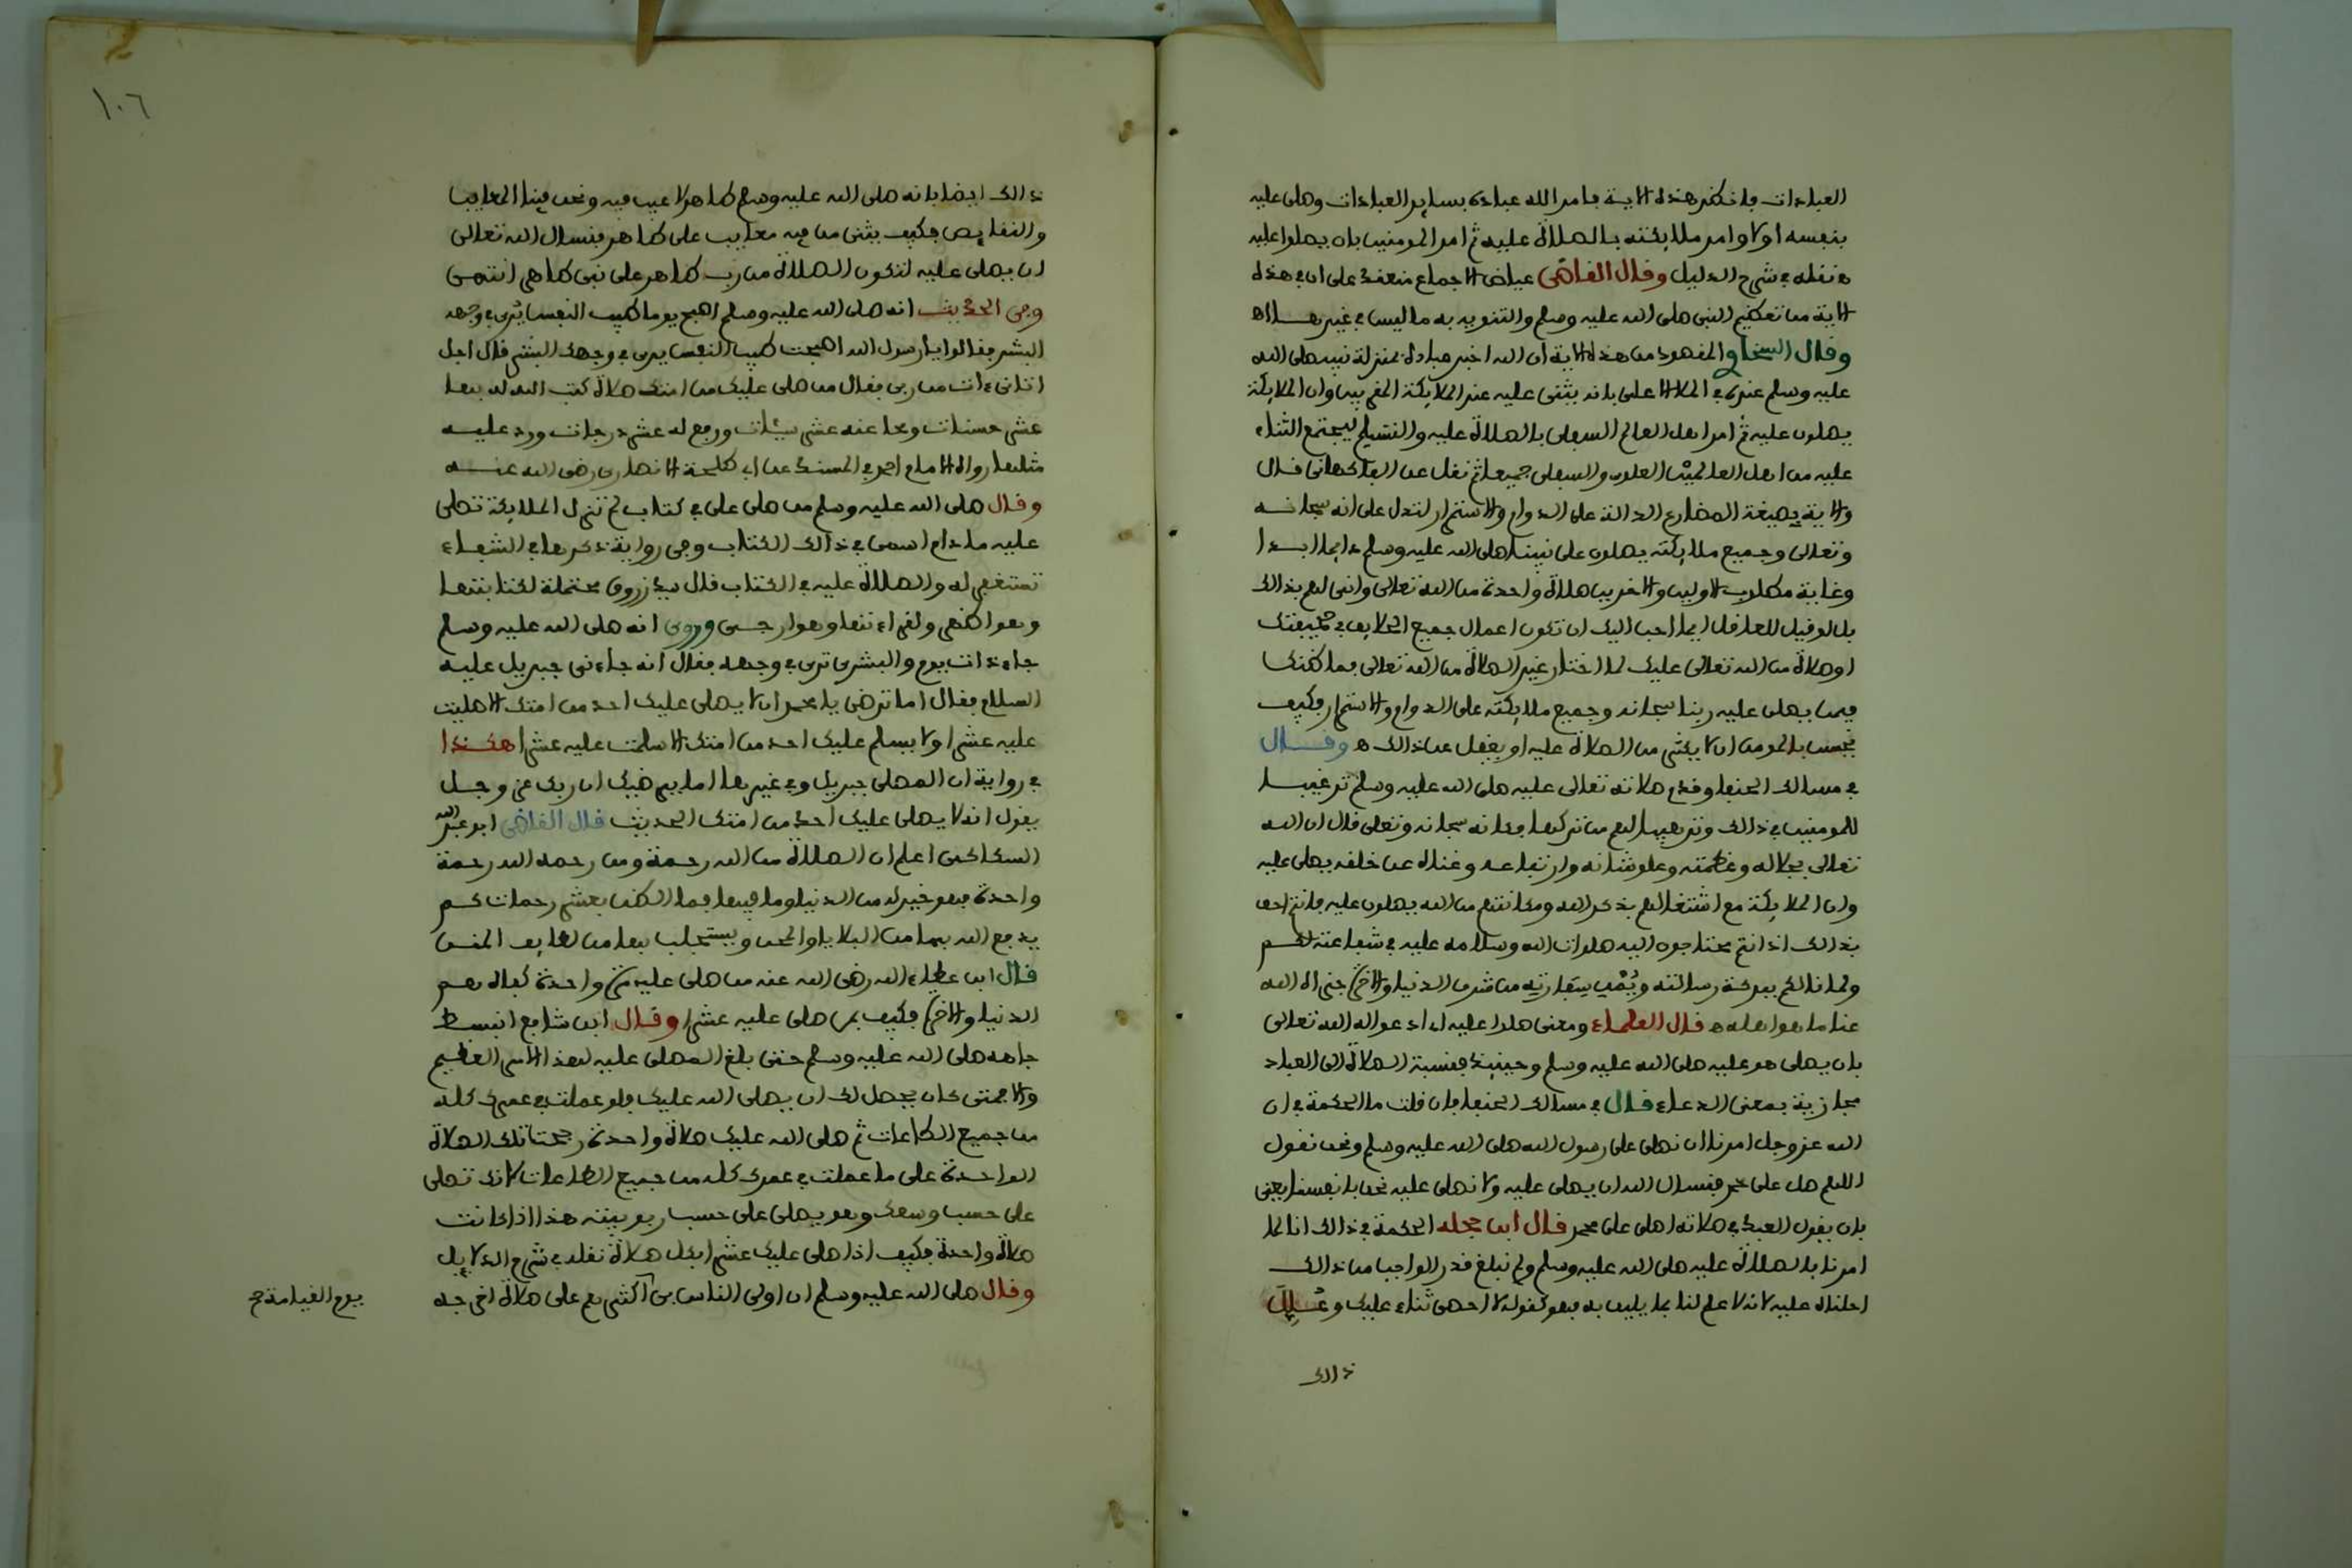 العبادات فانظر هذه الاية فامر الله عباده بساير العبادات وصلى عليه
بنفسه اولا وامر ملايكته بالصلاة عليه ثم امر المومنين بان يصلوا عليه
ه نقله في شرح الدليل وقال القاضي عياض الاجماع منعقد على ان في هذه
الاية من تعظيم النبي صلى الله عليه وسلم والتنويه به ما ليس في غيرها اه
وقال السخاوي المقصود من هذه الاية ان الله اخبر عباده بمنزلة نبيه صلى الله
عليه وسلم عنده في الملا الاعلى بانه يثني عليه عند الملايكة المقربين وان الملايكة
يصلون عليه ثم امر اهل العالم السفلي بالصلاة عليه والتسليم ليجتمع الثناء
عليه من اهل العالمين العلوي والسفلي جميعا ثم نقل عن الفاكهاني قال
والاية بصيغة المضارع الدالة على الدوام والاستمرار لتدل على انه سبحانه
وتعالى وجميع ملايكته يصلون على نبينا صلى الله عليه وسلم دايما ابدا
وغاية مطلوب الاولين والاخرين صلاة واحدة من الله تعالى وانى لهم بذالك
بل لو قيل للعاقل ايما احب اليك ان تكون اعمال جميع الخلايق في صحيفتك
او صلاة من الله تعالى عليك لما اختار غير الصلاة من الله تعالى فما ظنك
فيمن يصلي عليه ربنا سبحانه وجميع ملايكته على الدوام والاستمرار فكيف
يحسن بالمومن ان لا يكثر من الصلاة عليه او يغفل عن ذالك ه وقال
في مسالك الحنفا وقدم صلاته تعالى عليه صلى الله عليه وسلم ترغيبا
للمومنين في ذالك وترهيبا لهم من تركها فكانه سبحانه وتعلى قال ان الله
تعالى بجلاله وعظمته وعلو شانه وارتفاعه وغناه عن خلفه يصلي عليه
وان الملايكة مع اشتغالهم بذكر الله ومكانتهم من الله يصلون عليه فانتم احق
بذالك اذ انتم محتاجون اليه صلوات الله وسلامه عليه في شفاعته لكم
ولما نالكم ببركة رسالته ويمن سفارته من شرف الدنيا والاخرة جزاه الله
عنا ما هو اهله ه قال العلماء ومعنى صلوا عليه اي ادعوا له الله تعالى
بان يصلي هو عليه صلى الله عليه وسلم وحينيذ فنسبة الصلاة الى العباد
مجازية بمعنى الدعاء قال في مسالك الحنفا فان قلت ما الحكمة في ان
الله عز وجل امرنا ان نصلي على رسول الله صلى الله عليه وسلم ونحن نقول
اللهم صل على محمد فنسال الله ان يصلي عليه ولا نصلي عليه نحن بانفسنا يعني
بان يقول العبد في صلاته اصلي على محمد قال ابن حجلة الحكمة في ذالك انا لما
امرنا بالصلاة عليه صلى الله عليه وسلم ولم نبلغ قدر الواجب من ذالك
احلناه عليه لانه لا علم لنا بما يليق به فهو كقوله لا احصي ثناء عليك
ذالك
١٠٦
ذالك ايضا بانه صلى الله عليه وسلم طاهر لا عيب فيه ونحن فينا المعايب
والنقايص فكيف يثني من فيه معايب على طاهر فنسال الله تعالى
ان يصلي عليه لتكون الصلاة من رب طاهر على نبي طاهر انتهى
وفي الحديث انه صلى الله عليه وسلم اصبح يوما طيب النفس يرى في وجهه
البشر فقالوا يا رسول الله اصبحت طيب النفس يرى في وجهك البشر قال اجل
اتاني ءات من ربي فقال من صلى عليك من امتك صلاة كتب الله له بها
عشر حسنات ومحا عنه عشر سيئات ورفع له عشر درجات ورد عليه
مثلها رواه الامام احمد في المسند عن ابي طلحة الانصاري رضي الله عنه
وقال صلى الله عليه وسلم من صلى علي في كتاب لم تزل الملايكة تصلي
عليه مادام اسمي في ذالك الكتاب وفي رواية ذكرها في الشفاء
تستغفر له والصلاة عليه في الكتاب قال سيد زروق محتملة لكتابتها
وهو اظهر ولقراءتها وهو ارجى وروي انه صلى الله عليه وسلم
جاء ذات يوم والبشرى ترى في وجهه فقال انه جاءني جبريل عليه
السلام فقال اما ترضى يا محمد ان لا يصلي عليك احد من امتك الا صليت
عليه عشرا ولا يسلم عليك احد من امتك الا سلمت عليه عشرا هكذا
في رواية ان المصلي جبريل وفي غيرها اما يرضيك ان ربك عز وجل
يقول انه لا يصلي عليك احد من امتك الحديث قال القاضي ابو عبد الله
السكاكي اعلم ان الصلاة من الله رحمة ومن رحمه الله رحمة
واحدة فهو خير له من الدنيا وما فيها فما الظن بعشر رحمات كم
يدفع الله بها من البلايا والمحن ويستجلب بها من لطايف المنن
قال ابن عطاء الله رضي الله عنه من صلى عليه مرة واحدة كفاه هم
الدنيا والاخرة فكيف بمن صلى عليه عشرا وقال ابن شافع انبسط
جاهه صلى الله عليه وسلم حتى بلغ المصلي عليه لهذا الامر العظيم
والا فمتى كان يحصل لك ان يصلي الله عليك فلو عملت في عمرك كله
من جميع الطاعات ثم صلى الله عليك صلاة واحدة رجحت تلك الصلاة
الواحدة على ما عملت في عمرك كله من جميع الطاعات لانك تصلي
على حسب وسعك وهو يصلي على حسب ربوبيته هذا اذا كانت
صلاة واحدة فكيف اذا صلى عليك عشرا بكل صلاة نقله في شرح الدلايل
وقال صلى الله عليه وسلم ان اولى الناس بي اكثرهم علي صلاة اخرجه
يوم القيامة صح